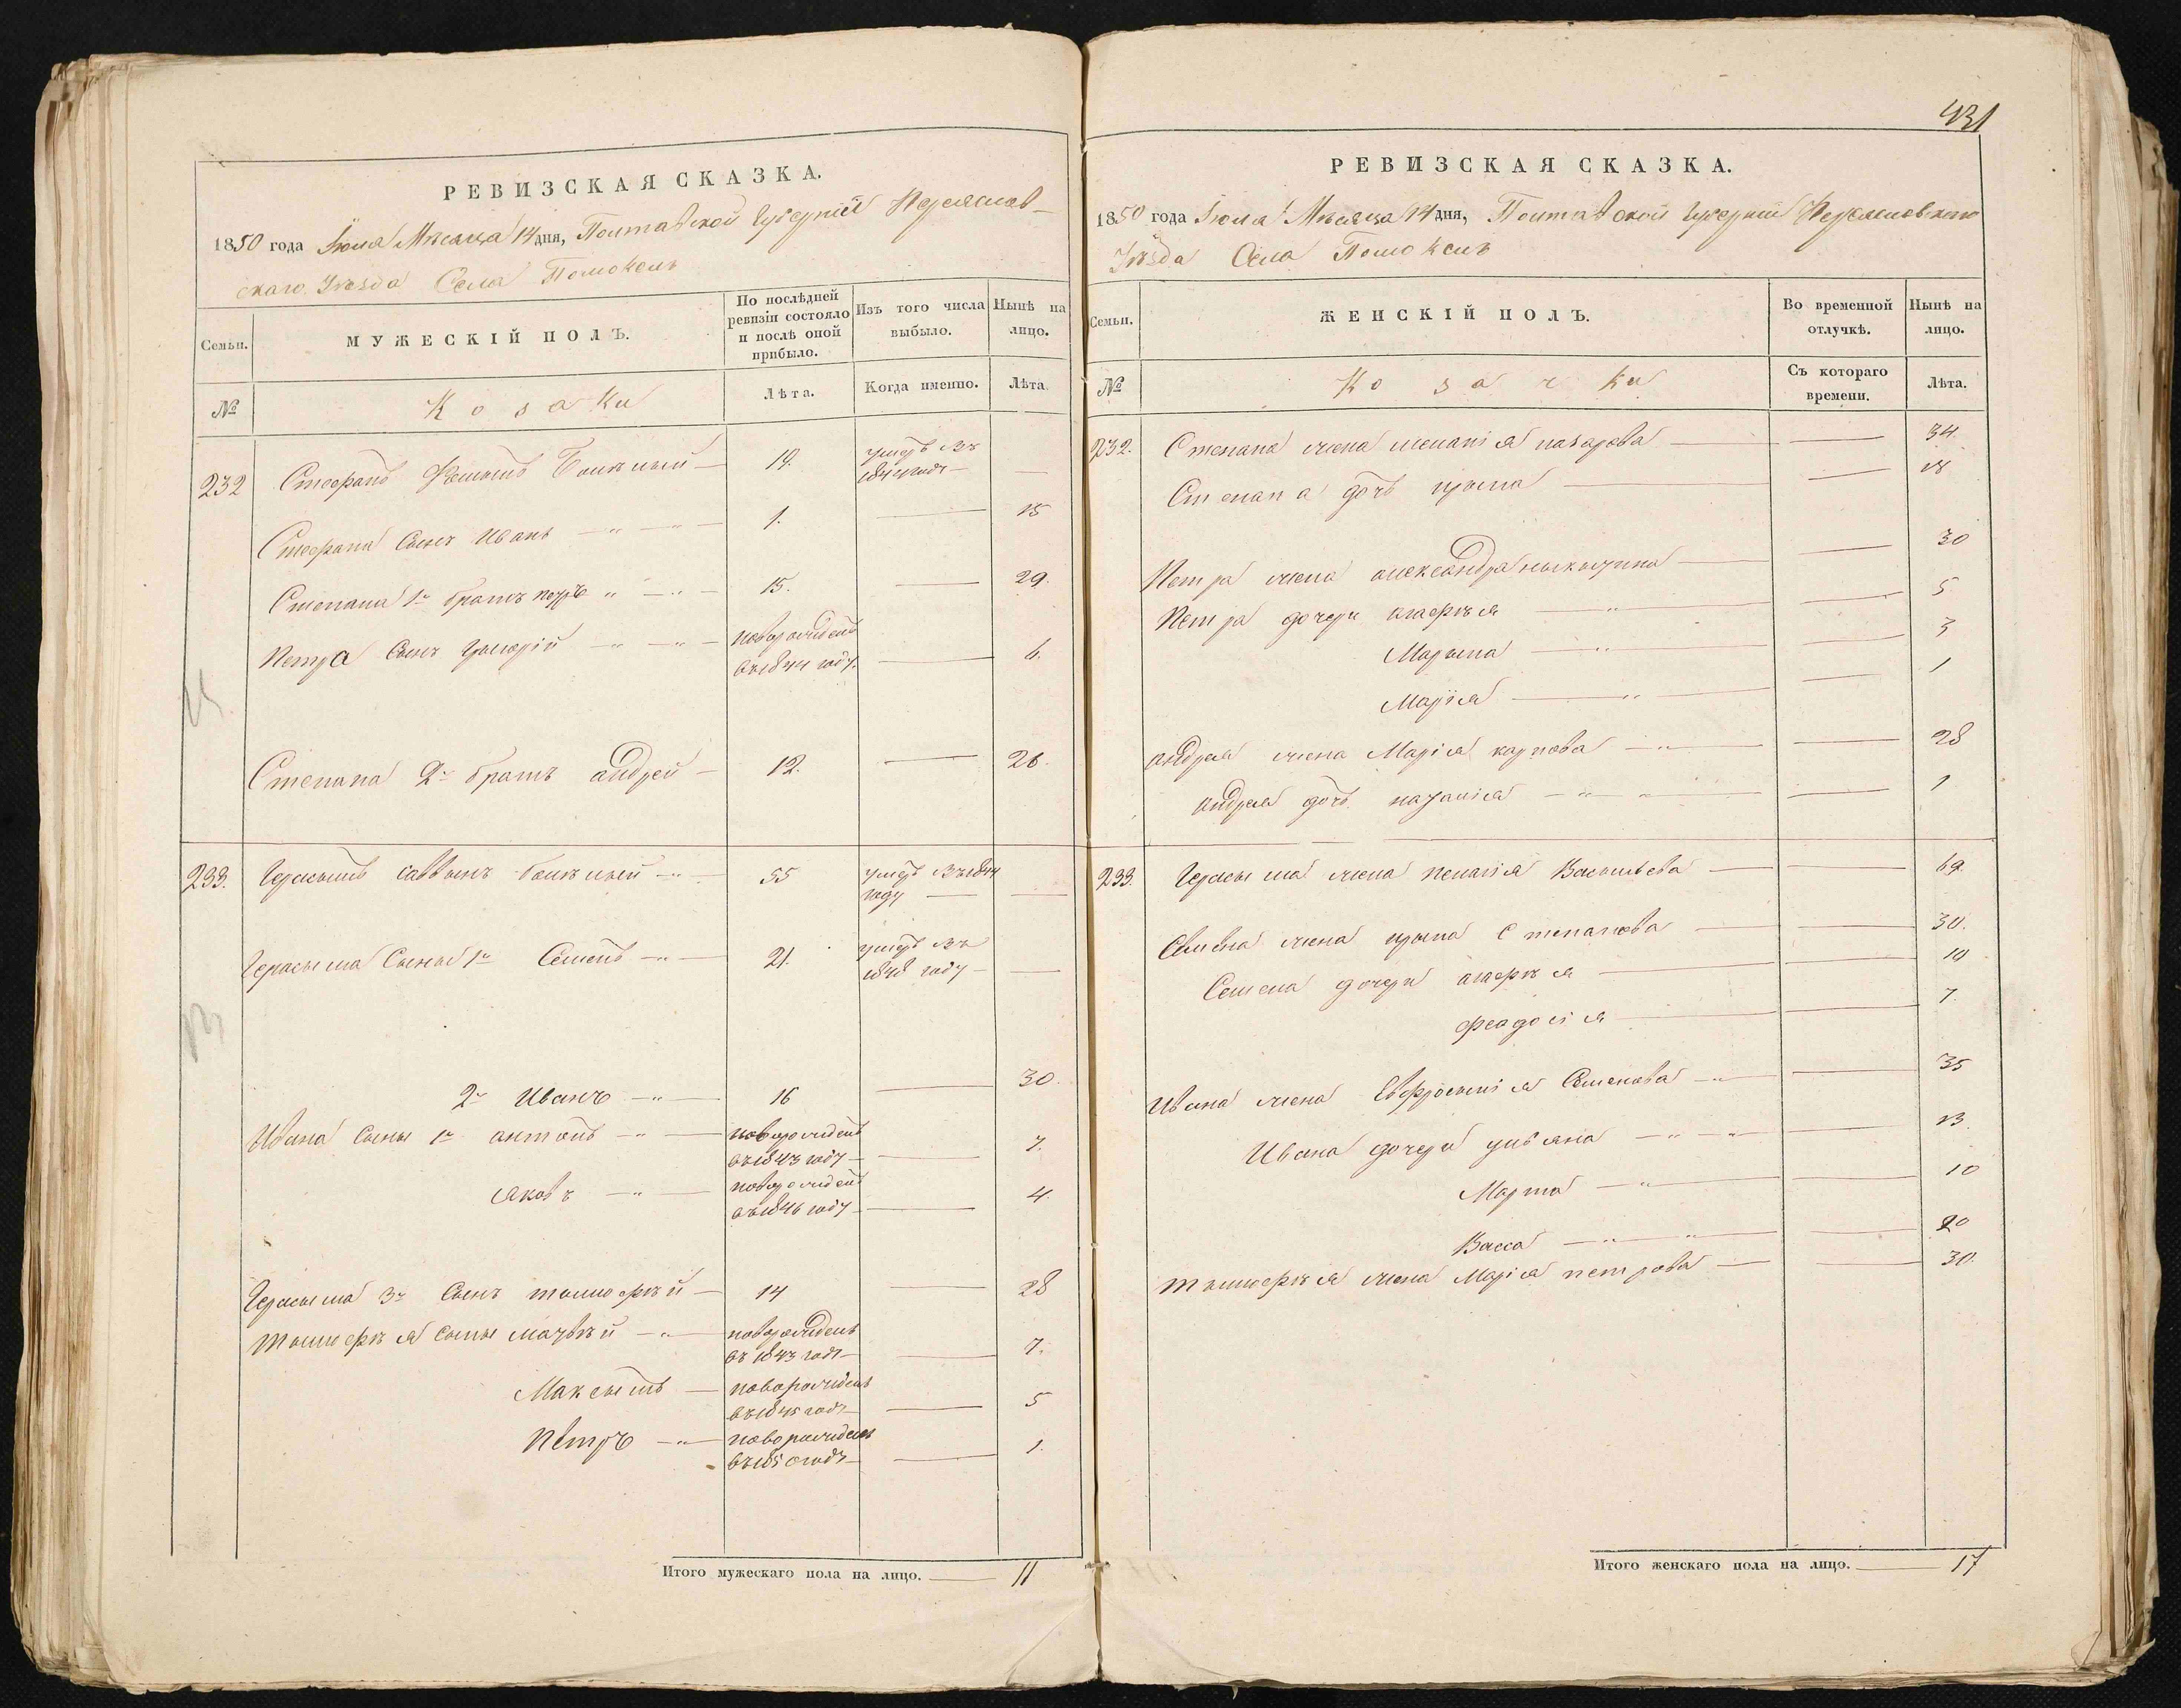 431
РЕВИЗСКАЯ СКАЗКА.
1850 года Іюля Мѣсяца 14 дня, Полтавской Губерніи Переяслав-
скаго Уѣзда Села Помоклъ
Семьи.
МУЖЕСКІЙ ПОЛЪ.
По послѣдней ревизіи состояло и послѣ оной прибыло.
Изъ того числа выбыло.
Нынѣ на лицо.
№
Козаки
Лѣта.
Когда именно.
Лѣта.
232 Стефанъ 19. умеръ въ
1844 годѣ —
Стефана Сынъ Иванъ 1. 15
Степана 1й братъ петръ 15. 29.
Петра Сынъ Григорій новорожденъ
въ 1844 году. 6.
Степана 2й братъ андрей 12. 26.
233. Герасымъ саввынъ 55 умеръ въ 1844
году
Герасыма Сыны 1й Семенъ 21. умеръ въ
1848 году
2й Иванъ 16 30.
Ивана Сыны 1й антонъ новорожденъ
въ 1843 году 7.
яковъ новорожденъ
въ 1846 году 4.
Герасыма 3й Сынъ тымофѣй 14 28
тымофѣя сыны матвѣй новорожденъ
въ 1843 годѣ 7.
Максымъ новорожденъ
въ 1845 годѣ 5
Петръ новорожденъ
въ 185 годѣ 1.
Итого мужескаго пола на лицо. 11
РЕВИЗСКАЯ СКАЗКА.
1850 года Іюля Мѣсяца 14 дня, Полтавской Губерніи Переяславскаго
Уѣзда Села Помоклъ
Семьи.
ЖЕНСКІЙ ПОЛЪ.
Во временной отлучкѣ.
Нынѣ на лицо.
№
Козачки
Съ котораго времени.
Лѣта.
232. Степана жена меланія назарова 34.
Степана дочь ирына 18
Петра жена александра 30
Петра дочери агафѣя 5
Марына 3
Марія 1
андрея жена Марія карпова 28
андрея дочь наталія 1
233. Герасыма жена пелагія Васыльева 69.
Семена жена ирына Степанова 30.
Семена дочери агафѣя 10
феодосія 7.
Ивана жена Евфросынія Семенова 35
Ивана дочери ульяна 13.
Марта 10
Васса 20
тымофѣя жена Марія петрова 30.
Итого женскаго пола на лицо. 17